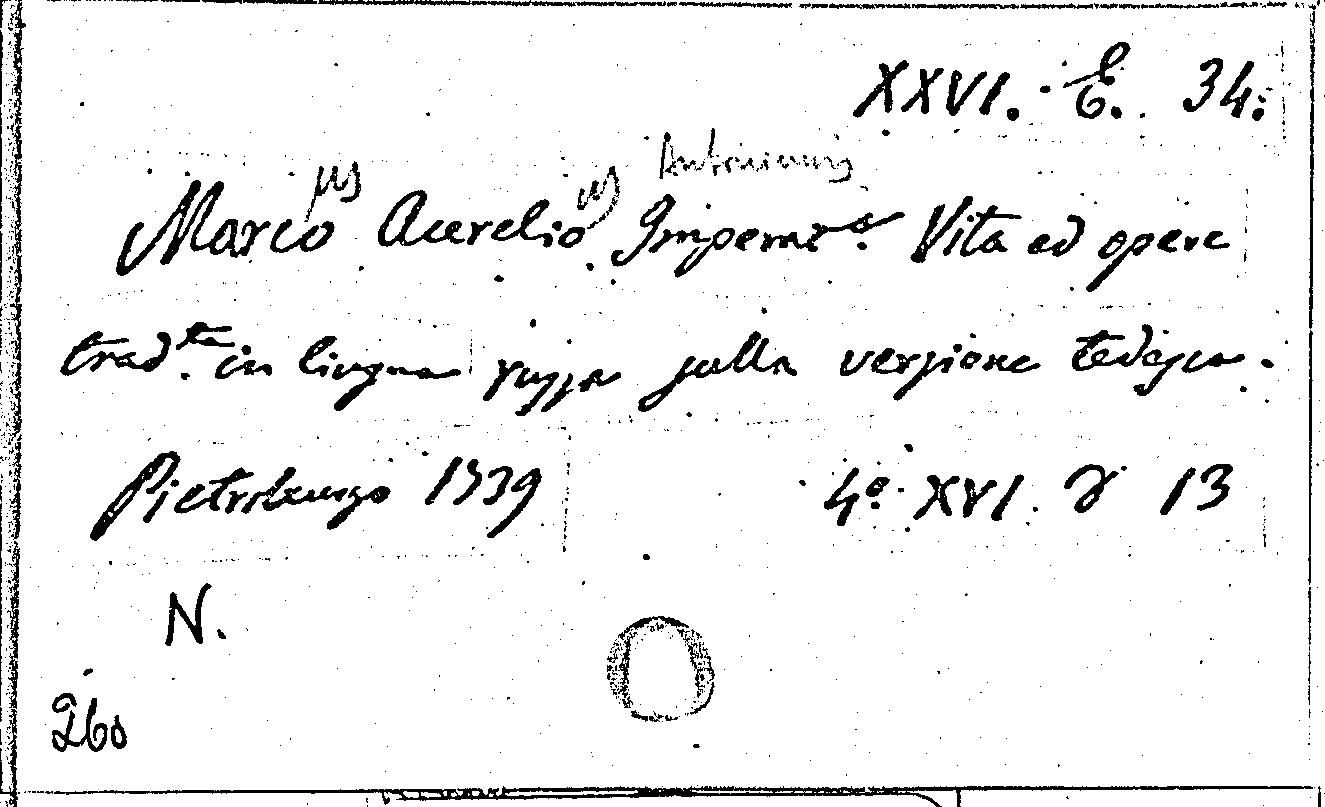 XXVI. E. 34.
us us Antoninus
Marco Aurelio Imperat.e Vita ed opere
trad.te in lingua russa sulla versione tedesca.
Pietroburgo 1739 4.° XVI. 13
N.
260